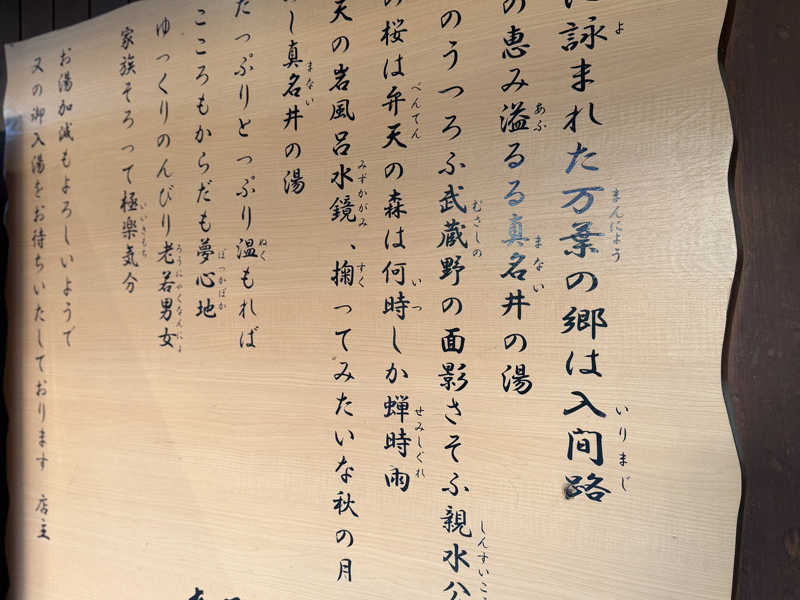 詠まれた万葉の郷は入間路
の恵み溢るる真名井の湯
のうつろふ武蔵野の面影さそふ親水公
の桜は弁天の森は何時しか蝉時雨
天の岩風呂水鏡、掬ってみたいな秋の月
し真名井の湯
たっぷりとっぷり温もれば
こころもからだも夢心地
ゆっくりのんびり老若男女
家族そろって極楽気分
お湯加減もよろしいようで
又の御入湯をお待ちいたしております 店主